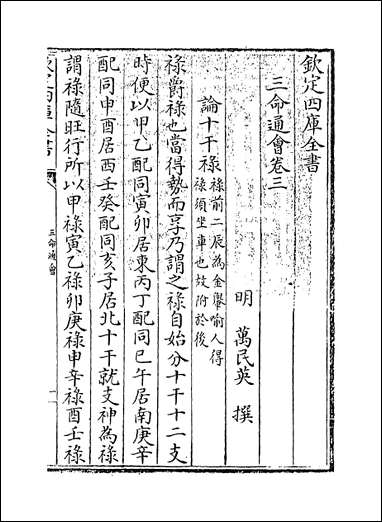 欽定四庫全書
三命通會卷三
明 萬民英 撰
論十干祿祿前二辰為金轝喻人得
祿須坐車也故附於後
祿爵祿也當得勢而享乃謂之祿自始分十干十二支
時便以甲乙配同寅卯居東丙丁配同巳午居南庚辛
配同申酉居西壬癸配同亥子居北十干就支神為祿
謂祿隨旺行所以甲祿寅乙祿卯庚祿申辛祿酉壬祿
三命通會